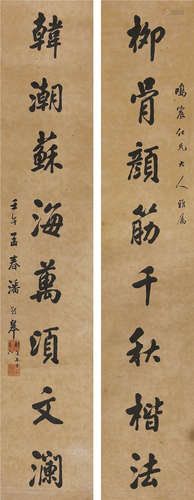 鳴宸仁兄大人雅屬
柳骨顏筋千秋楷法
韓潮蘇海萬頃文瀾
壬午孟春潘齡皋